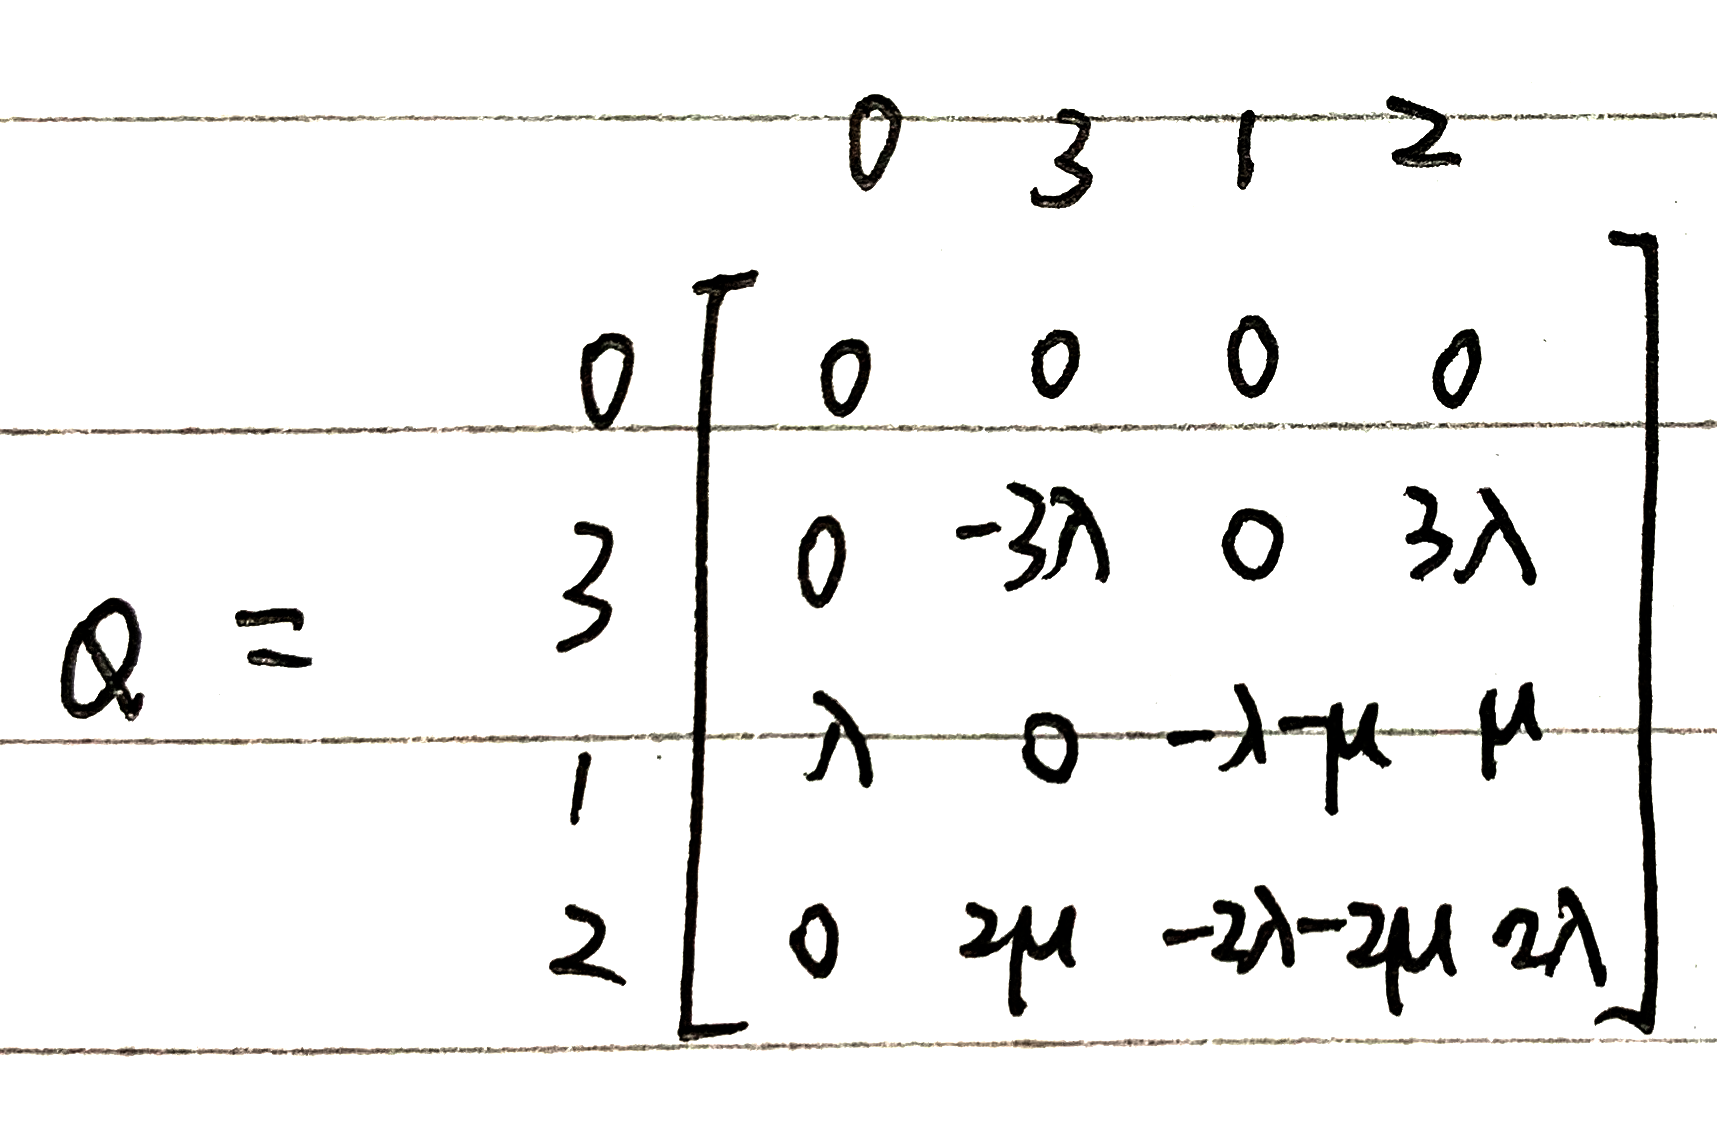 0 3 1 2
0 0 0 0 0
3 0 -3λ 0 3λ
Q =
1 λ 0 -λ-μ μ
2 0 2μ -2λ-2μ 2λ